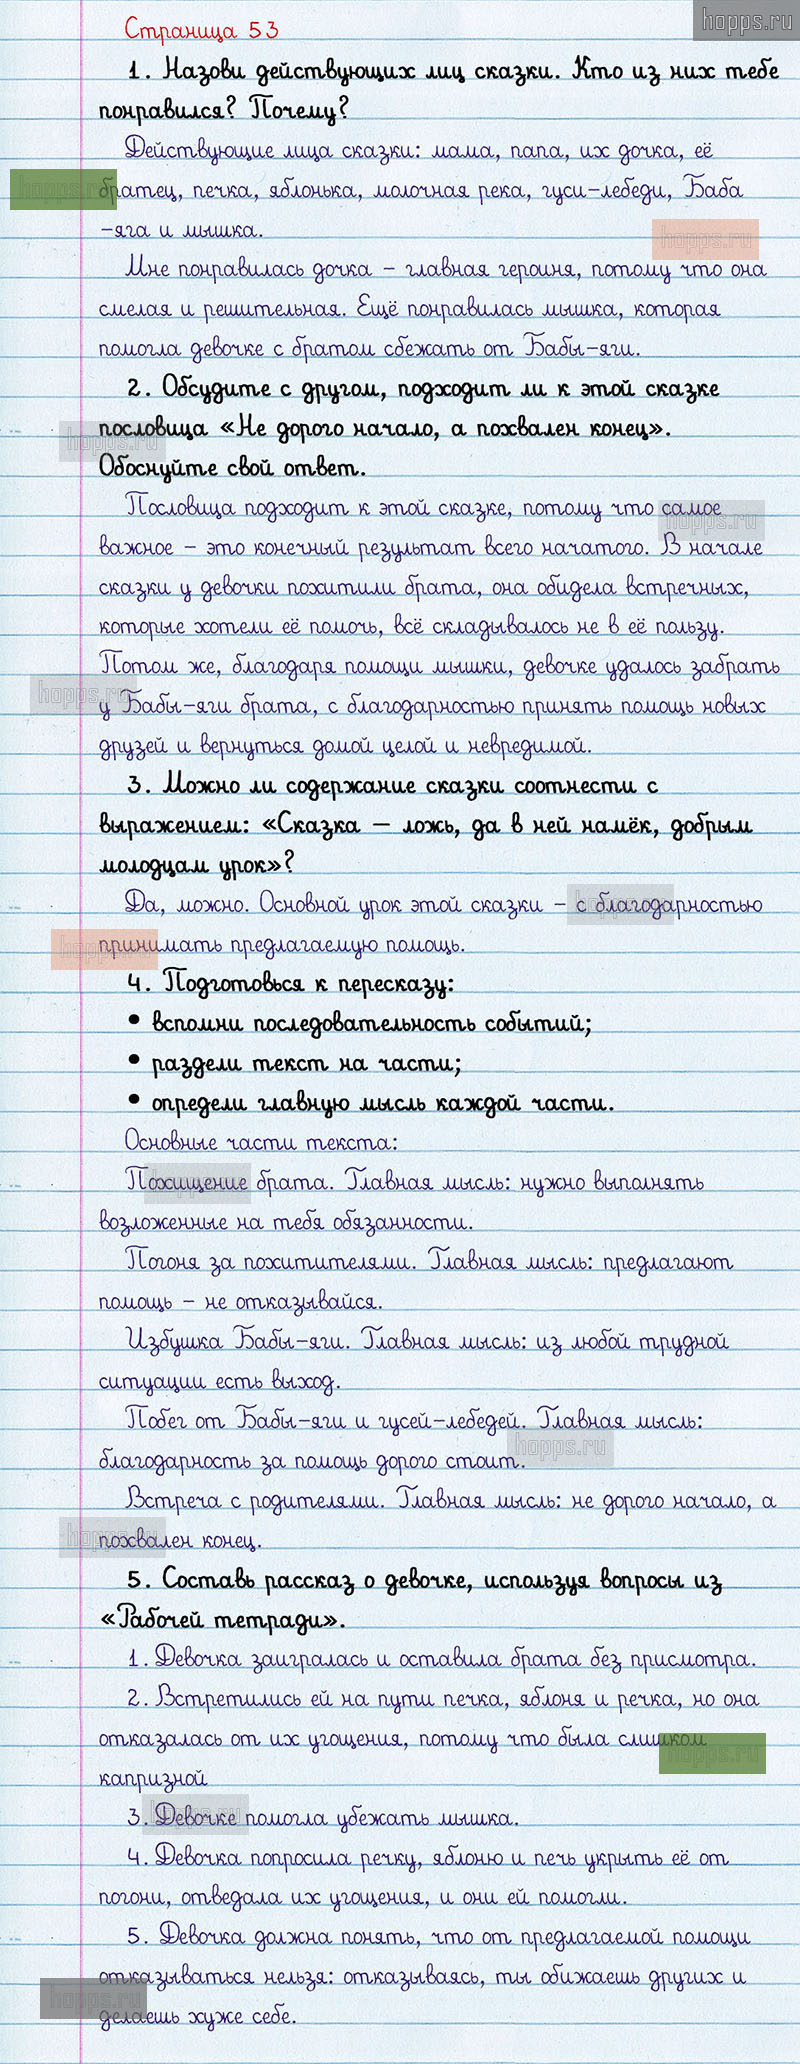 hopps.ru
Страница 53
1. Назови действующих лиц сказки. Кто из них тебе
понравился? Почему?
Действующие лица сказки: мама, папа, их дочка, её
братец, печка, яблонька, молочная река, гуси-лебеди, Баба
-яга и мышка.
hopps.ru
hopps.ru
Мне понравилась дочка – главная героиня, потому что она
смелая и решительная. Ещё понравилась мышка, которая
помогла девочке с братом сбежать от Бабы-яги.
2. Обсудите с другом, подходит ли к этой сказке
пословица «Не дорого начало, а похвален конец».
hopps.ru
Обоснуйте свой ответ.
Пословица подходит к этой сказке, потому что самое
hopps.ru
важное – это конечный результат всего начатого. В начале
сказки у девочки похитили брата, она обидела встречных,
которые хотели её помочь, всё складывалось не в её пользу.
Потом же, благодаря помощи мышки, девочке удалось забрать
hopps.ru
у Бабы-яги брата, с благодарностью принять помощь новых
друзей и вернуться домой целой и невредимой.
3. Можно ли содержание сказки соотнести с
выражением: «Сказка – ложь, да в ней намёк, добрым
молодцам урок»?
Да, можно. Основной урок этой сказки – с благодарностью
hopps.ru
принимать предлагаемую помощь.
hopps.ru
4. Подготовься к пересказу:
• вспомни последовательность событий;
• раздели текст на части;
• определи главную мысль каждой части.
Основные части текста:
Похищение брата. Главная мысль: нужно выполнять
hopps.ru
возложенные на тебя обязанности.
Погоня за похитителями. Главная мысль: предлагают
помощь – не отказывайся.
Избушка Бабы-яги. Главная мысль: из любой трудной
ситуации есть выход.
Побег от Бабы-яги и гусей-лебедей. Главная мысль:
hopps.ru
благодарность за помощь дорого стоит.
Встреча с родителями. Главная мысль: не дорого начало, а
похвален конец.
hopps.ru
5. Составь рассказ о девочке, используя вопросы из
«Рабочей тетради».
1. Девочка заигралась и оставила брата без присмотра.
2. Встретились ей на пути печка, яблоня и речка, но она
отказалась от их угощения, потому что была слишком
hopps.ru
капризной
3. Девочке помогла убежать мышка.
hopps.ru
4. Девочка попросила речку, яблоню и печь укрыть её от
погони, отведала их угощения, и они ей помогли.
5. Девочка должна понять, что от предлагаемой помощи
отказываться нельзя: отказываясь, ты обижаешь других и
hopps.ru
делаешь хуже себе.